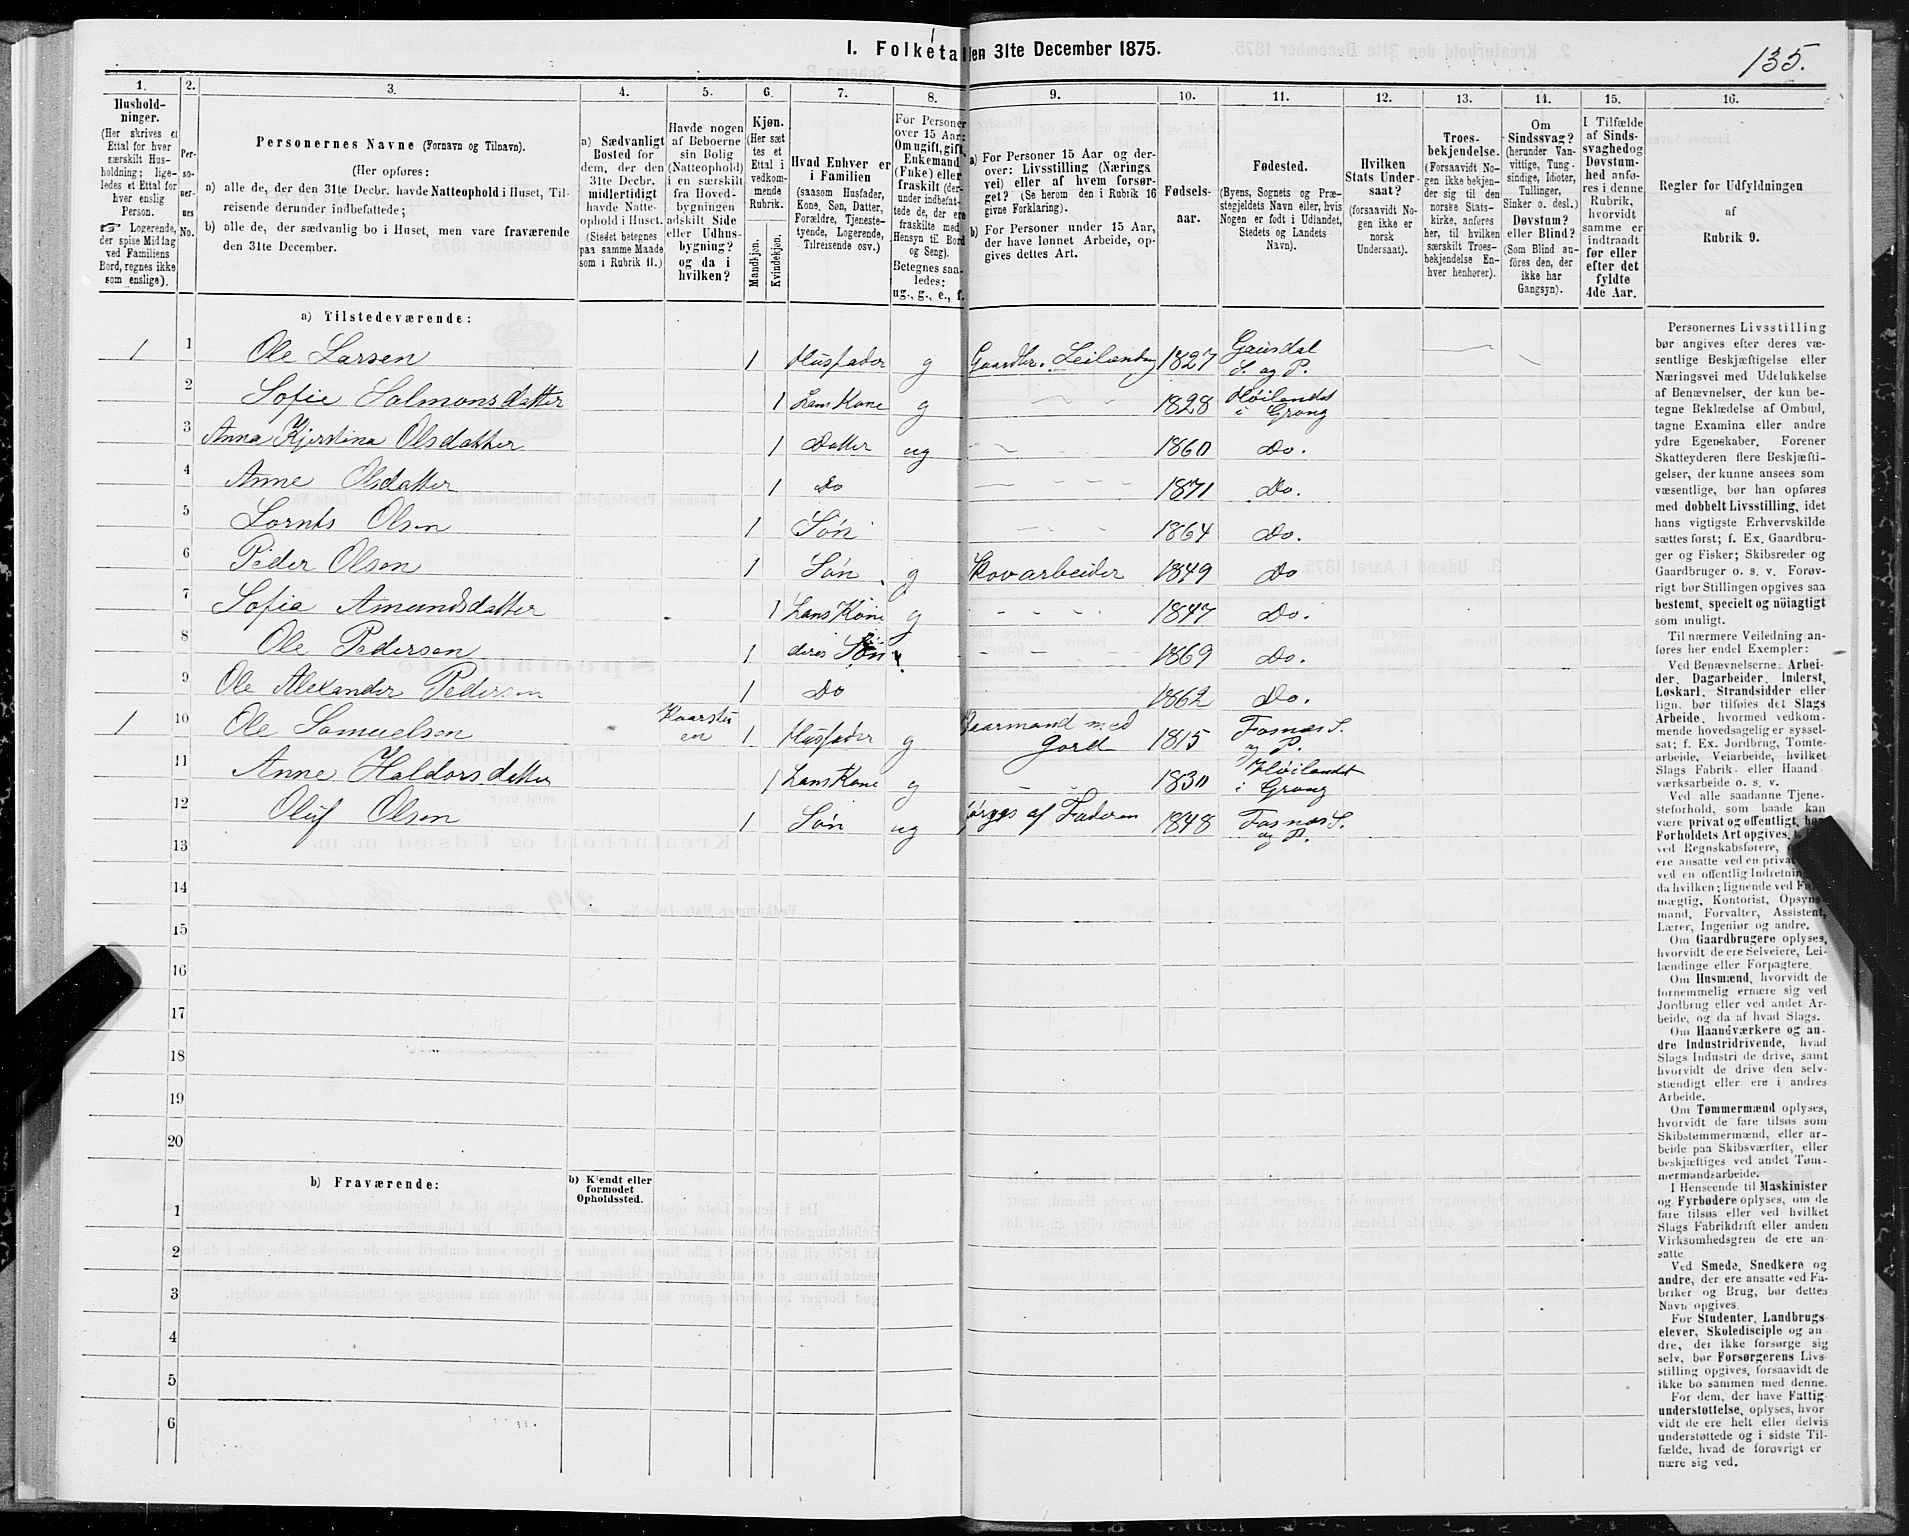 I. Folketal den 31te December 1875.
135.
1.
Hushold-
ninger.
(Her skrives et
Ettal for hver
særskilt Hus-
holdning; lige-
ledes et Ettal for
hver enslig
Person.
Logerende,
der spise Middag
ved Familiens
Bord, regnes ikke
som enslige).
2.
Per-
so-
ner-
nes
No.
3.
Personernes Navne (Fornavn og Tilnavn).
(Her opføres:
a) alle de, der den 31te Decbr. havde Natteophold i Huset, Til-
reisende derunder indbefattede;
b) alle de, der sædvanlig bo i Huset, men vare fraværende
den 31te December.
4.
a) Sædvanligt
Bosted for
dem, der den
31te Decbr.
midlertidigt
havde Natte-
ophold i Huset.
(Stedet betegnes
paa samme Maade
som i Rubrik 11.)
5.
Havde nogen
af Beboerne
sin Bolig
(Natteophold)
i en særskilt
fra Hoved-
bygningen
adskilt Side
eller Udhus-
bygning?
og da i
hvilken?
6.
Kjøn.
(Her sæt
tes et
Ettal i
vedkom-
mende
Rubrik.
Mandkjøn.
Kvindekjøn.
7.
Hvad Enhver er
i Familien
(saasom Husfader,
Kone, Søn, Datter,
Forældre, Tjeneste-
tyende, Logerende,
Tilreisende osv.)
8.
For Personer
over 15 Aar:
Om ugift, gift,
Enkemand
(Enke) eller
fraskilt (der-
under indbefat-
tede de, der ere
fraskilte med
Hensyn til Bord
og Seng).
Betegnes saa-
ledes:
ug., g., e., f.
9.
a) For Personer 15 Aar og der-
over: Livsstilling (Nærings
vei) eller af hvem forsør-
get? (Se herom den i Rubrik 16
givne Forklaring).
b) For Personer under 15 Aar,
der have lønnet Arbeide, op-
gives dettes Art.
10.
Fødsels-
aar.
11.
Fødested.
(Byens, Sognets og Præ-
stegjeldets Navn eller, hvis
Nogen er født i Udlandet,
Stedets og Landets
Navn).
12.
Hvilken
Stats Under-
saat?
(forsaavidt No-
gen ikke er
norsk
Undersaat).
13.
Troes-
bekjendelse.
(Forsaavidt No-
gen ikke bekjen-
der sig til den
norske Stats-
kirke, anføres
her, til hvilken
særskilt Troes-
bekjendelse En-
hver henhører).
14.
Om
Sindssvag?
(herunder Van-
vittige, Tung-
sindige, Idioter,
Tullinger,
Sinker o. desl.)
Døvstum?
eller Blind?
(Som Blind an-
føres den, der
ikke har
Gangsyn).
15.
I Tilfælde
af Sinds-
svaghed og
Døvstum-
hed anfø-
res i denne
Rubrik,
hvorvidt
samme er
indtraadt
før eller
efter det
fyldte
4de Aar.
16.
Regler for Udfyldningen
af
Rubrik 9.
a) Tilstedeværende:
1 1 Ole Larsen 1 Husfader g Gaardbr. Leilænding 1827 Gausdal S. og P.
2 Sofie Salmonsdatter 1 hans Kone g 1828 Høilandet i Grong
3 Anna Kjerstina Olsdatter 1 Datter ug 1860 Do.
4 Anne Olsdatter 1 Do 1871 Do.
5 Lornts Olsen 1 Søn 1864 Do.
6 Peder Olsen 1 Søn g Skovarbeider 1849 Do
7 Sofia Amundsdatter 1 hans Kone g 1847 Do.
8 Ole Pedersen 1 deres Søn 1869 Do.
9 Ole Alexander Pedersen 1 Do 1862 Do.
1 10 Ole Samuelsen 1 Husfader g Kaarmand med Jord 1815 Fosnæs S. og P.
11 Anne Haldorsdatter 1 hans Kone g 1830 Høilandet i Grong
12 Oluf Olsen 1 Søn ug forsørges af Faderen 1848 Fosnæs S. og P.
13
14
15
16
17
18
19
20
b) Fraværende:
b) Kjendt eller
formodet
Opholdssted.
1
2
3
4
5
6
Personernes Livsstilling
bør angives efter deres væ-
sentlige Beskjæftigelse eller
Næringsvei med Udelukkelse
af Benævnelser, der kun be-
tegne Beklædelse af Ombud,
tagne Examina eller andre
ydre Egenskaber. Forener
Skatteyderen flere Beskjæfti-
gelser, der kunne ansees som
væsentlige, bør han opføres
med dobbelt Livsstilling, idet
hans vigtigste Erhvervskilde
sættes først; f. Ex. Gaardbru-
ger og Fisker; Skibsreder og
Gaardbruger o. s. v. Forøv-
rigt bør Stillingen opgives saa
bestemt, specielt og nøiagtigt
som muligt.
Til nærmere Veiledning an-
føres her endel Exempler:
Ved Benævnelserne: Arbei-
der, Dagarbeider, Inderst,
Løskarl, Strandsidder eller
lign. bør tilføies det Slags
Arbeide, hvormed vedkom-
mende hovedsagelig er syssel-
sat; f. Ex. Jordbrug, Tomte-
arbeide, Veiarbeide, hvilket
Slags Fabrik- eller Haand
værksarbeide o. s. v.
Ved alle saadanne Tjene-
steforhold, som baade kan
være privat og offentligt, bør
Forholdets Art opgives,
ved Regnskabsførere,
ere ansatte ved en privat
ved en offentlig Indretning
da hvilken; lignende ved Fuld-
mægtig, Kontorist, Opsyns-
mand, Forvalter, Assistent,
Lærer, Ingeniør og andre.
Om Gaardbrugere oplyses,
hvorvidt de ere Selveiere, Lei-
lændinge eller Forpagtere.
Om Husmænd, hvorvidt de
fornemmelig ernære sig ved
Jordbrug eller ved andet Ar-
beide, og da af hvad Slags.
Om Haandværkere og an-
dre Industridrivende, hvad
Slags Industri de drive, samt
hvorvidt de drive den selv-
stændigt eller ere i andres
Arbeide.
Om Tømmermænd oplyses,
hvorvidt de fare tilsøs som
Skibstømmermænd, eller ar-
beide paa Skibsværfter, eller
beskjæftiges ved andet Tøm-
mermandsarbeide.
I Henseende til Maskinister
og Fyrbødere oplyses, om de
fare tilsøs eller ved hvilket
Slags Fabrikdrift eller anden
Virksomhedsgren de ere an-
satte
Ved Smede, Snedkere og
andre, der ere ansatte ved Fa-
briker og Brug, bør dettes
Navn opgives.
For Studenter, Landbrugs-
elever, Skoledisciple og an-
dre, der ikke forsørge sig
selv, bør Forsørgerens Livs-
stilling opgives, forsaavidt de
ikke bo sammen med denne.
For dem, der have Fattig-
understøttelse, oplyses, hvor
vidt de ere helt eller delvis
understøttede og i sidste Til-
fælde, hvad de forøvrigt er
nære sig ved.